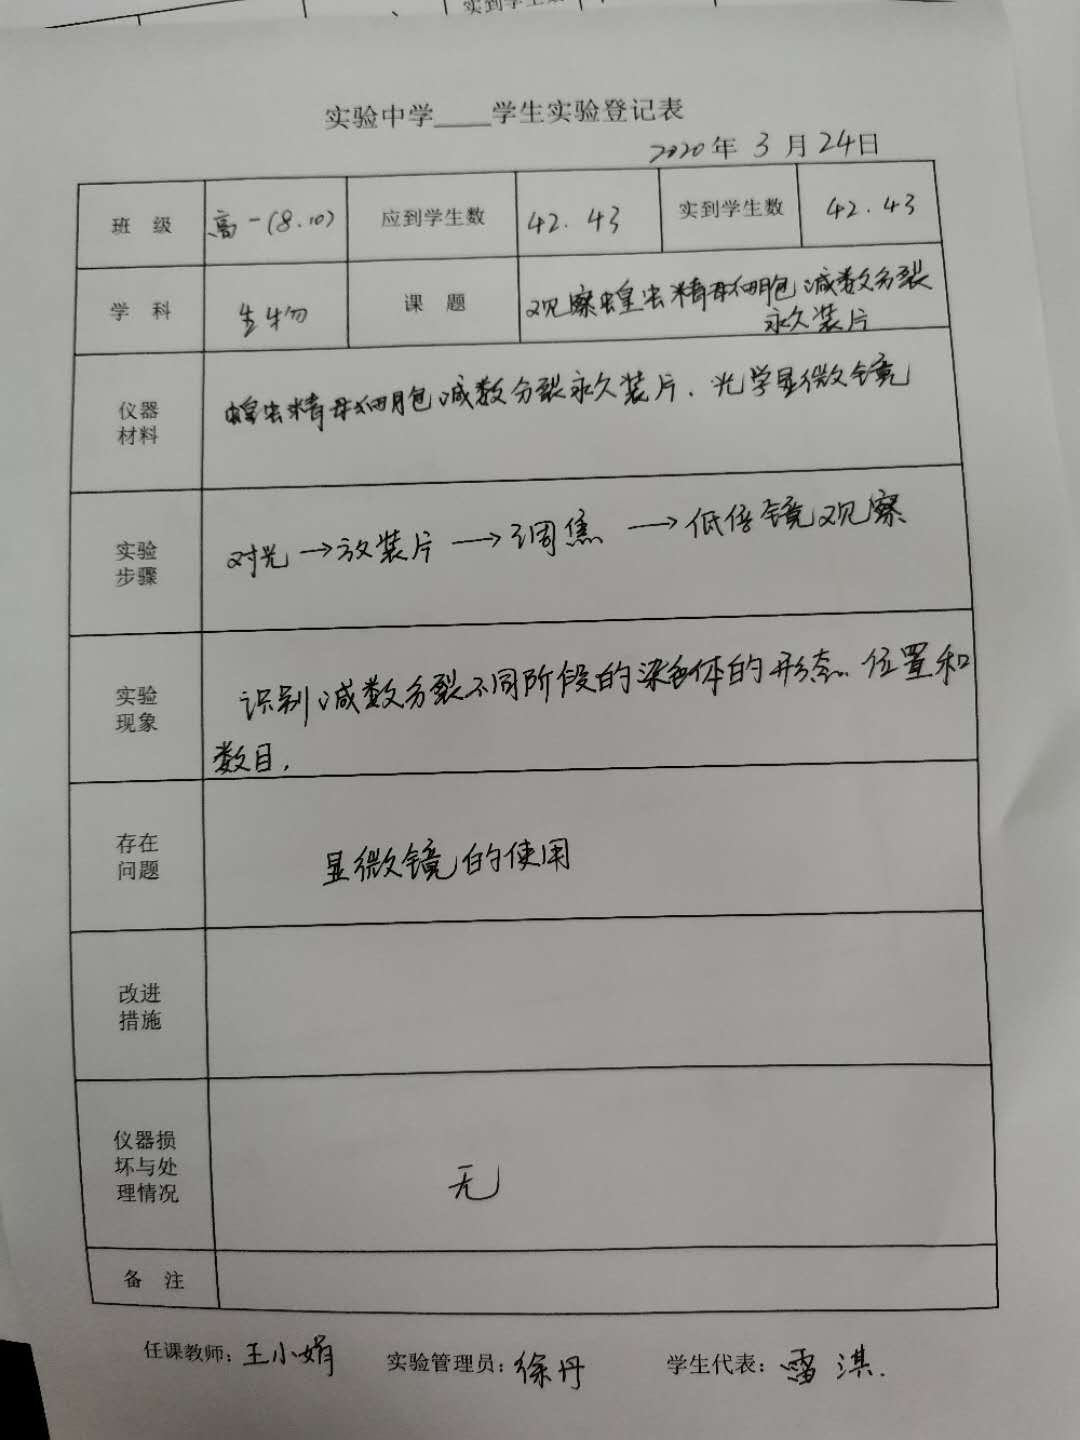 实到学生数
实验中学____学生实验登记表
2020年 3 月 24日
班 级 高一(8.10) 应到学生数 42. 43 实到学生数 42. 43
学 科 生物 课 题 观察蝗虫精母细胞减数分裂
永久装片
仪器
材料
蝗虫精母细胞减数分裂永久装片. 光学显微镜
实验
步骤
对光→放装片→调焦→低倍镜观察
实验
现象
识别减数分裂不同阶段的染色体的形态. 位置和
数目.
存在
问题
显微镜的使用
改进
措施
仪器损
坏与处
理情况
无
备 注
任课教师: 王小娟 实验管理员: 徐丹 学生代表: 雷淇.